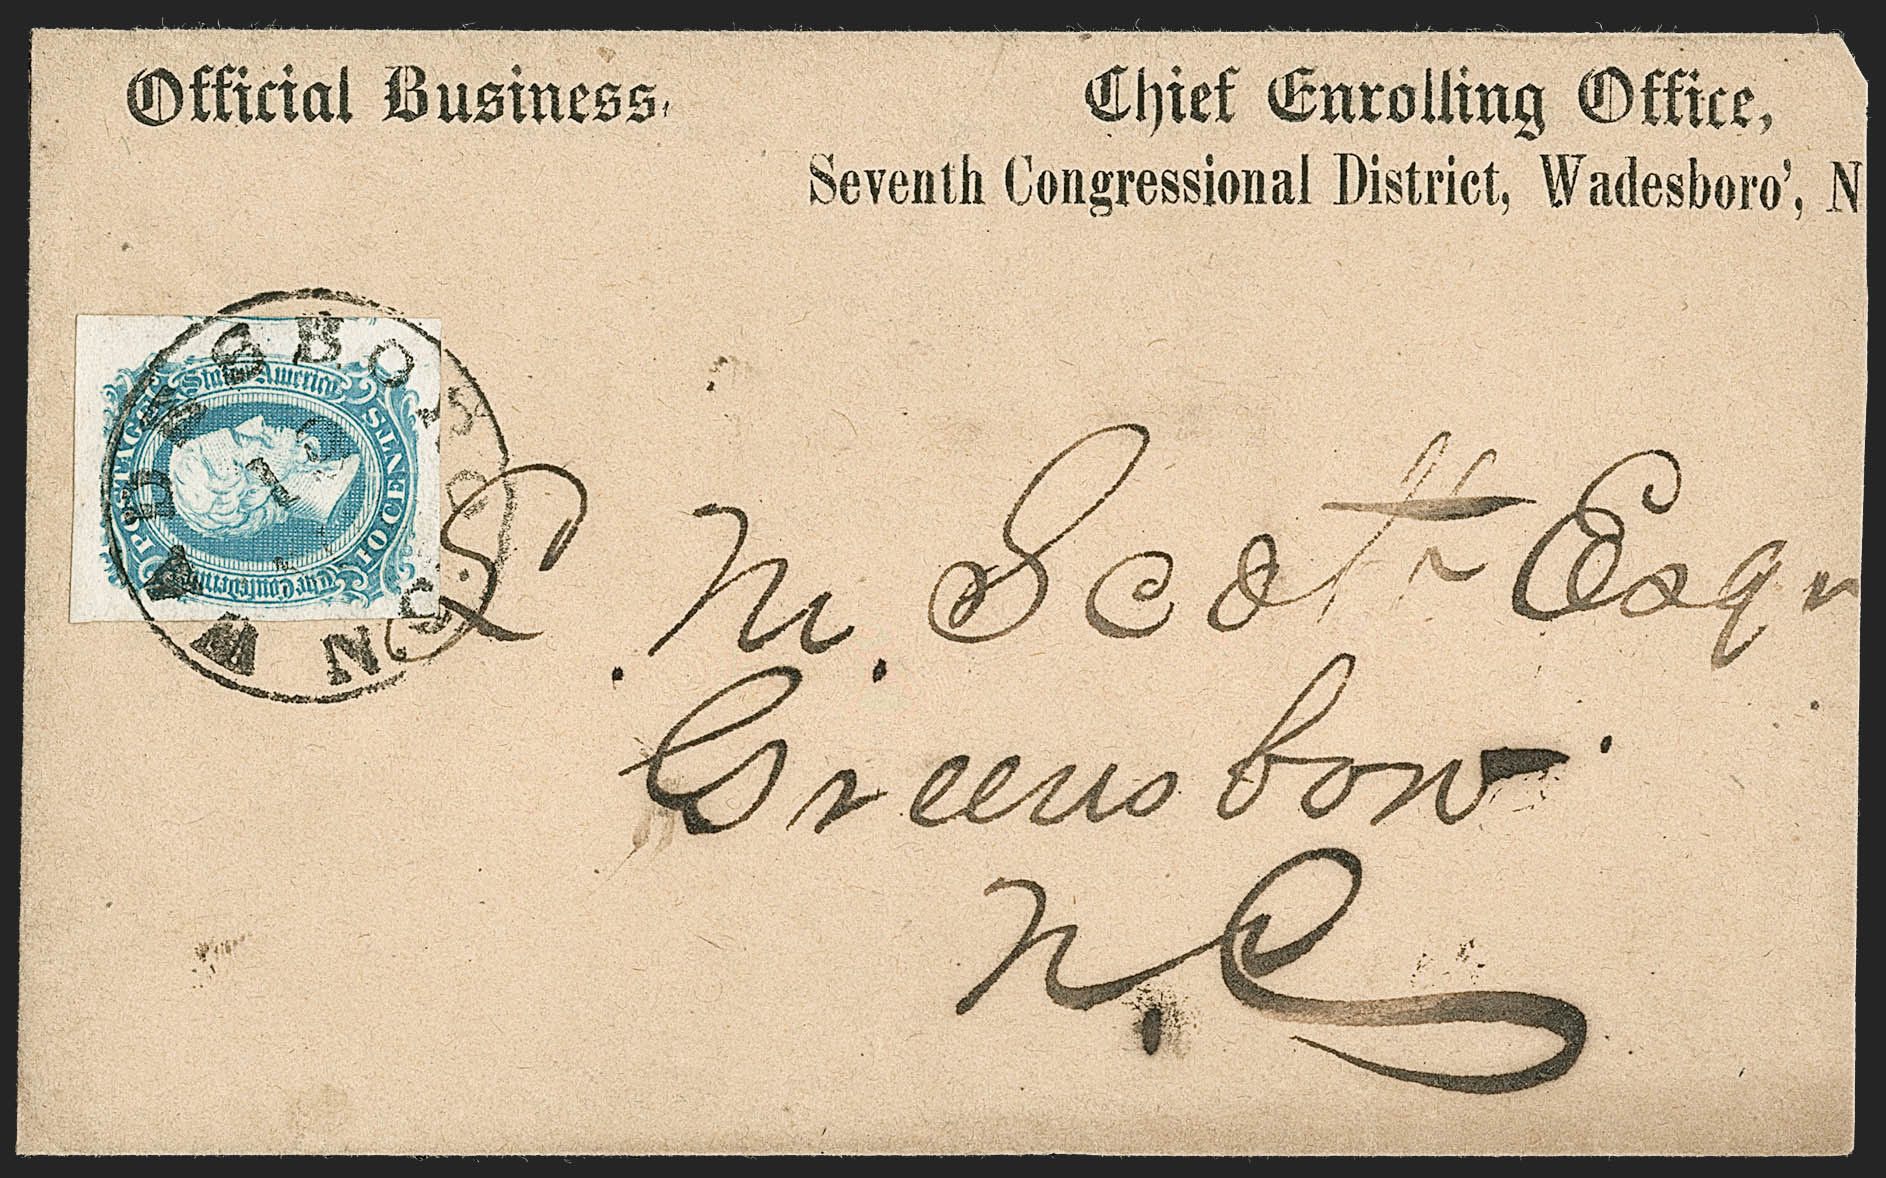 Official Business.
Chief Enrolling Office,
Seventh Congressional District, Wadesboro', N
The Confederate States America
POSTAGE
10 CENTS
WADESBORO'
N.C.
13
L. M. Scott Esqr
Greensboro
N. C